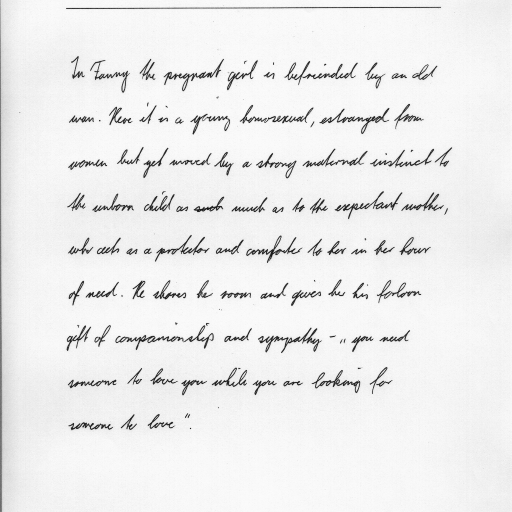 In Fanny the pregnant girl is befriended by an old
man. Here it is a young homosexual, estranged from
women but yet moved by a strong maternal instinct to
the unborn child as such much as to the expectant mother,
who acts as a protector and comforter to her in her hour
of need. He shares her room and gives her his forlorn
gift of companionship and sympathy - „ you need
someone to love you while you are looking for
someone to love ".